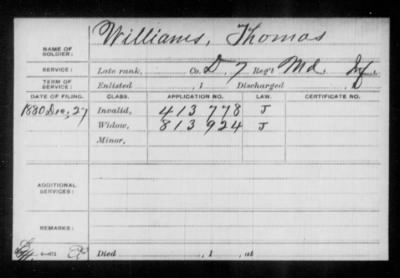 Williams, Thomas
NAME OF SOLDIER:
SERVICE: Late rank, Co. D. 7 Reg't Md. Inf.
TERM OF SERVICE: Enlisted , 1 Discharged , 1
DATE OF FILING. CLASS. APPLICATION NO. LAW. CERTIFICATE NO.
1880 Dec, 27 Invalid, 413 778 J
Widow, 813 924 J
Minor,
ADDITIONAL SERVICES:
REMARKS:
Died , 1 , at